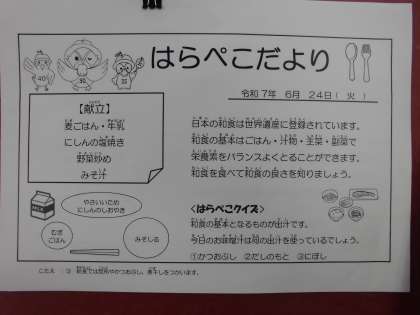 はらぺこだより
令和7年 6月 24日( 火 )
【献立】
麦ごはん・牛乳
にしんの塩焼き
野菜炒め
みそ汁
日本の和食は世界遺産に登録されています。
和食の基本はごはん・汁物・主菜・副菜で
栄養素をバランスよくとることができます。
和食を食べて和食の良さを知りましょう。
やさいいため
にしんのしおやき
むぎ
ごはん
みそしる
<はらぺこクイズ>
和食の基本となるものが出汁です。
今日のお味噌汁は何の出汁を使っているでしょう。
①かつおぶし ②だしのもと ③にぼし